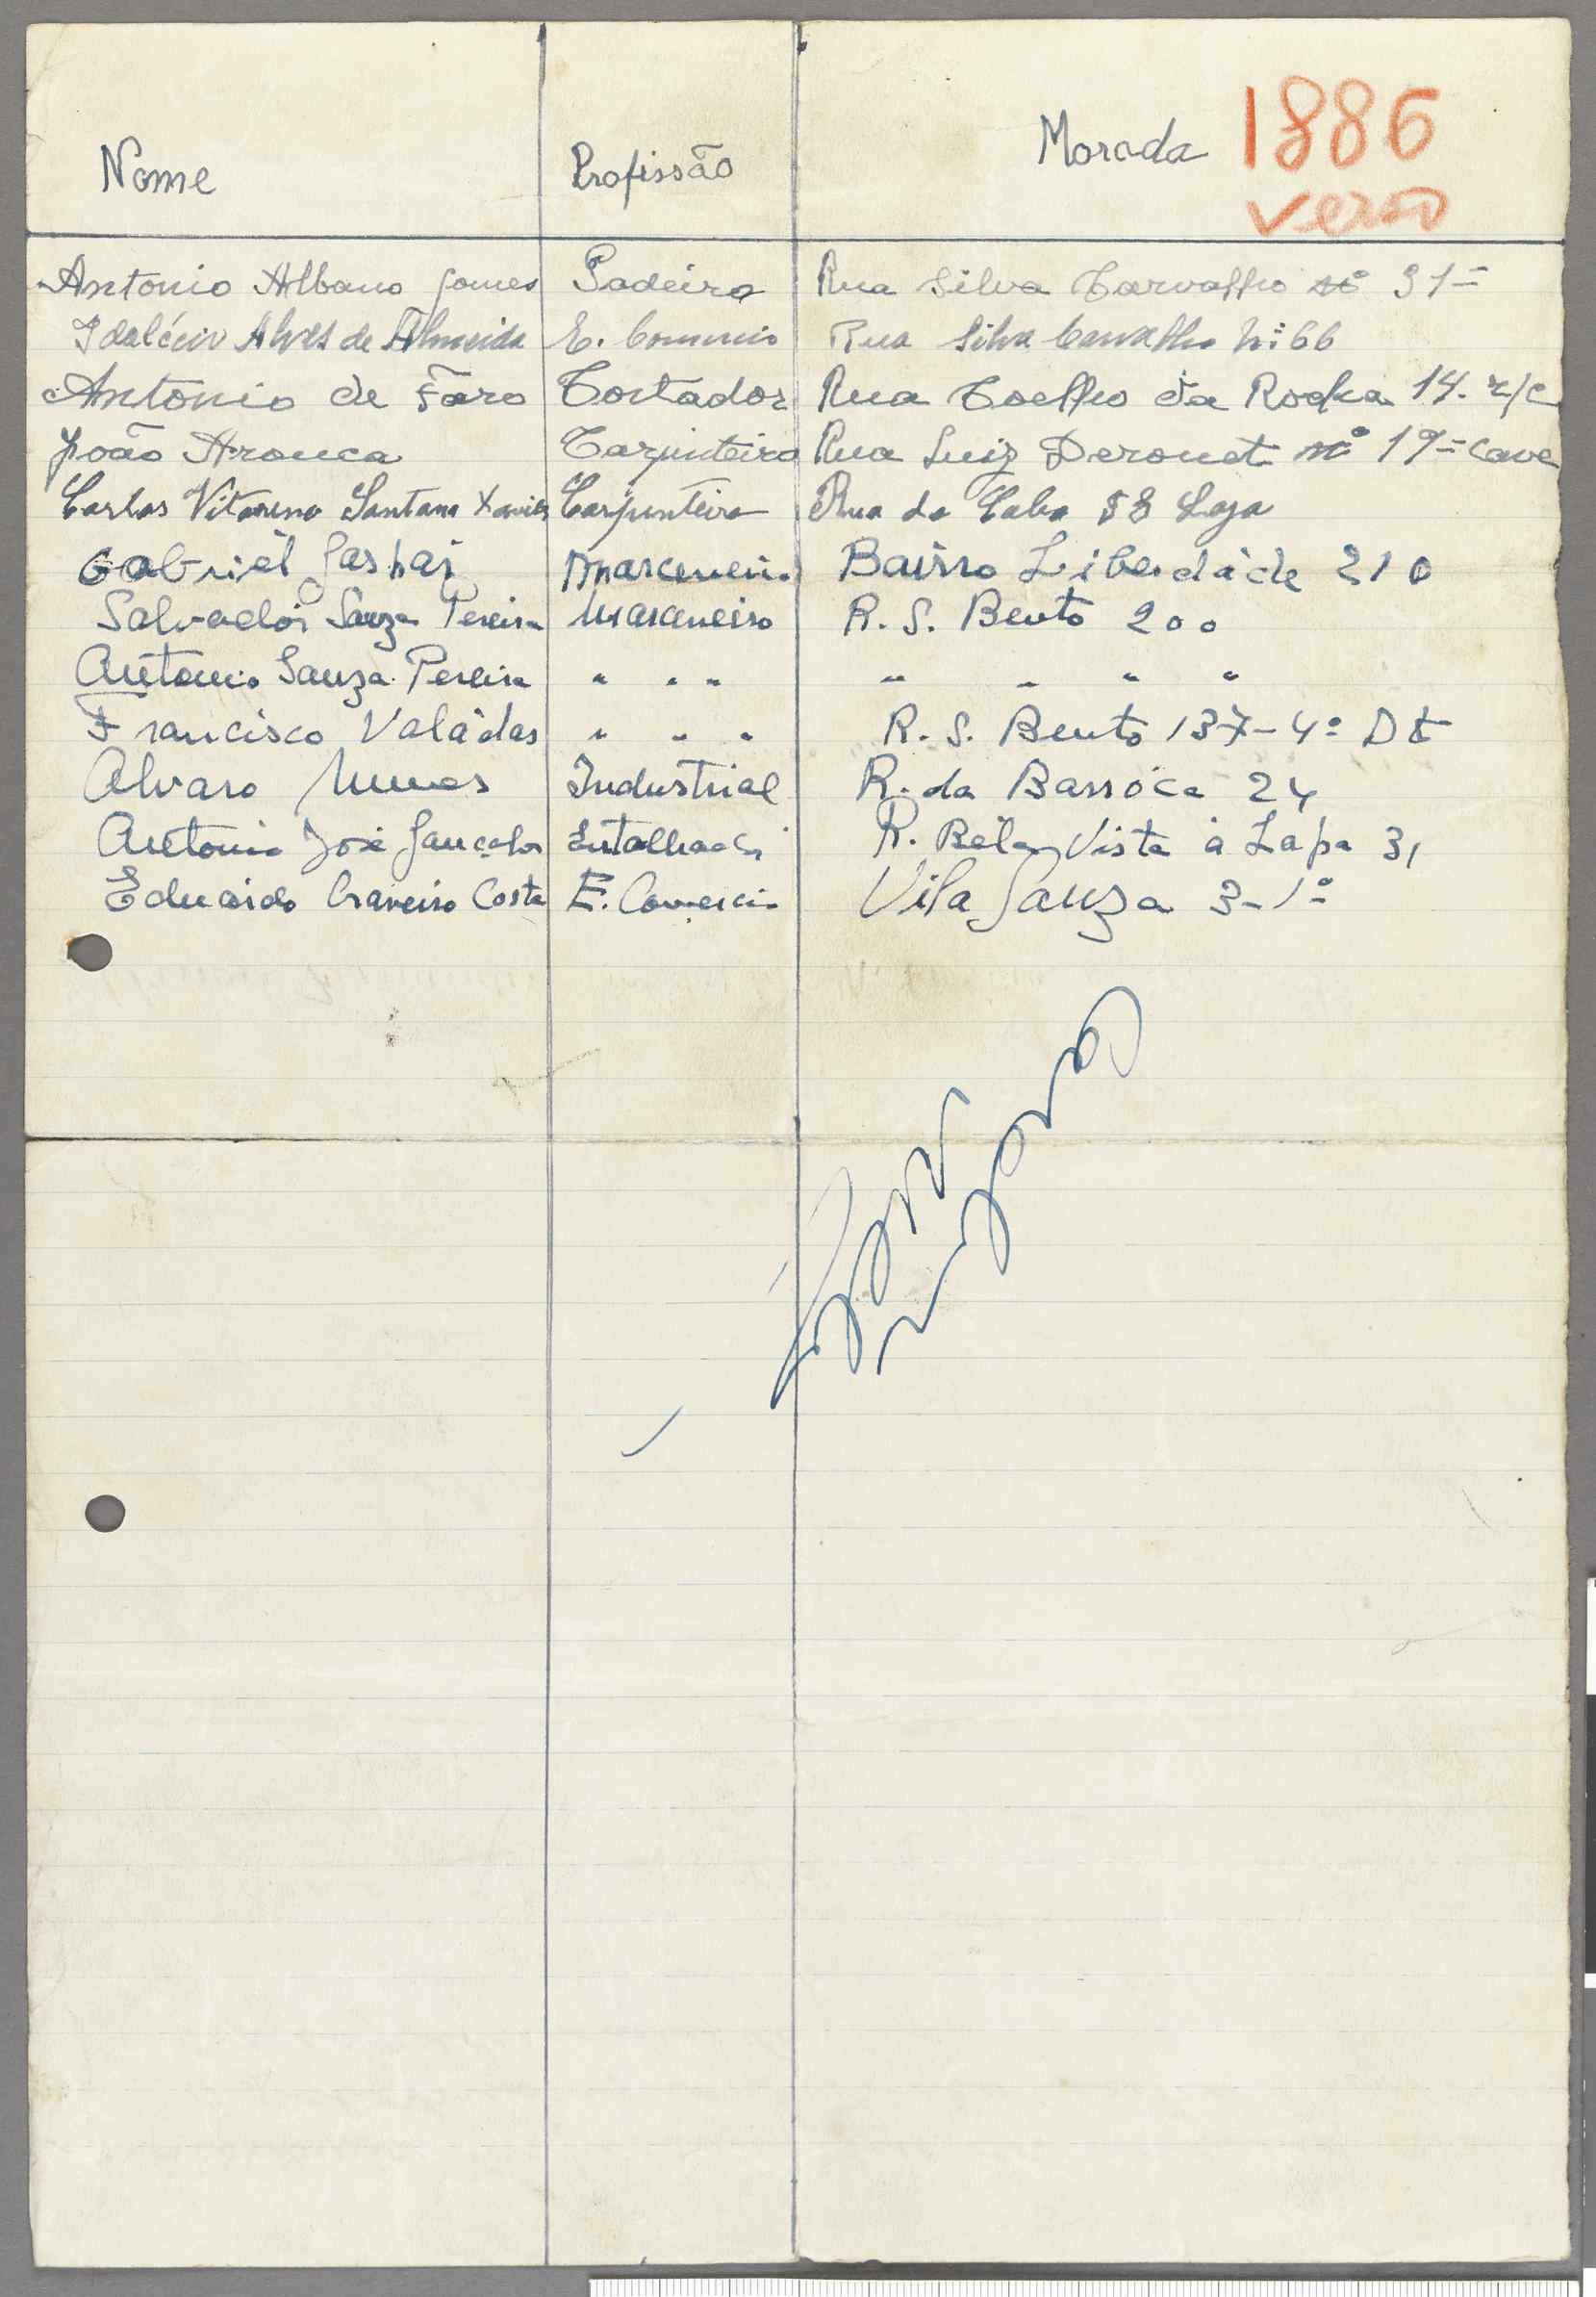 Nome Profissão Morada 1886
verso
Antonio Albano Gomes Padeiro Rua Silva Carvalho nº 31=
Idalécio Alves de Almeida E. Comercio Rua Silva Carvalho nº 66
Antonio de Faro Cortador Rua Coelho da Rocha 14. r/c
João Arouca Carpinteiro Rua Luiz Deronet nº 19= cave
Carlos Vitorino Santana Xavier Carpinteiro Rua do Cabo 58 Loja
Gabriél Gaspar Marceneiro Bairro Liberdáde 210
Salvador Sauza Pereira Marceneiro R. S. Bento 200
Antonio Sauza Pereira " " " " " " "
Francisco Valádas " " " R. S. Bento 137-4º Dt
Alvaro Nunes Industrial R. da Barróca 24
Antonio José Gonçalves Entalhador R. Béla Vista á Lapa 31
Eduardo Craveiro Costa E. Comercio Vila Sauza 3-1º